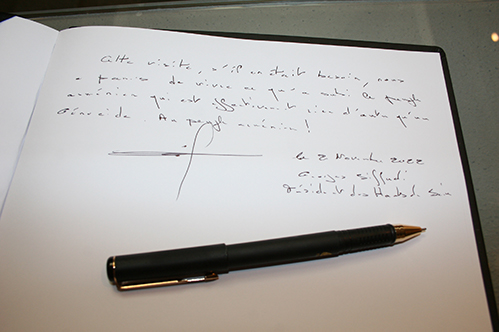 Cette visite, s'il en était besoin, nous
a permis de vivre ce qu'a subi le peuple
arménien qui est effectivement rien d'autre qu'un
Génocide. Au peuple arménien !
le 2 Novembre 2022
Georges Siffredi
Président des Hauts de Seine